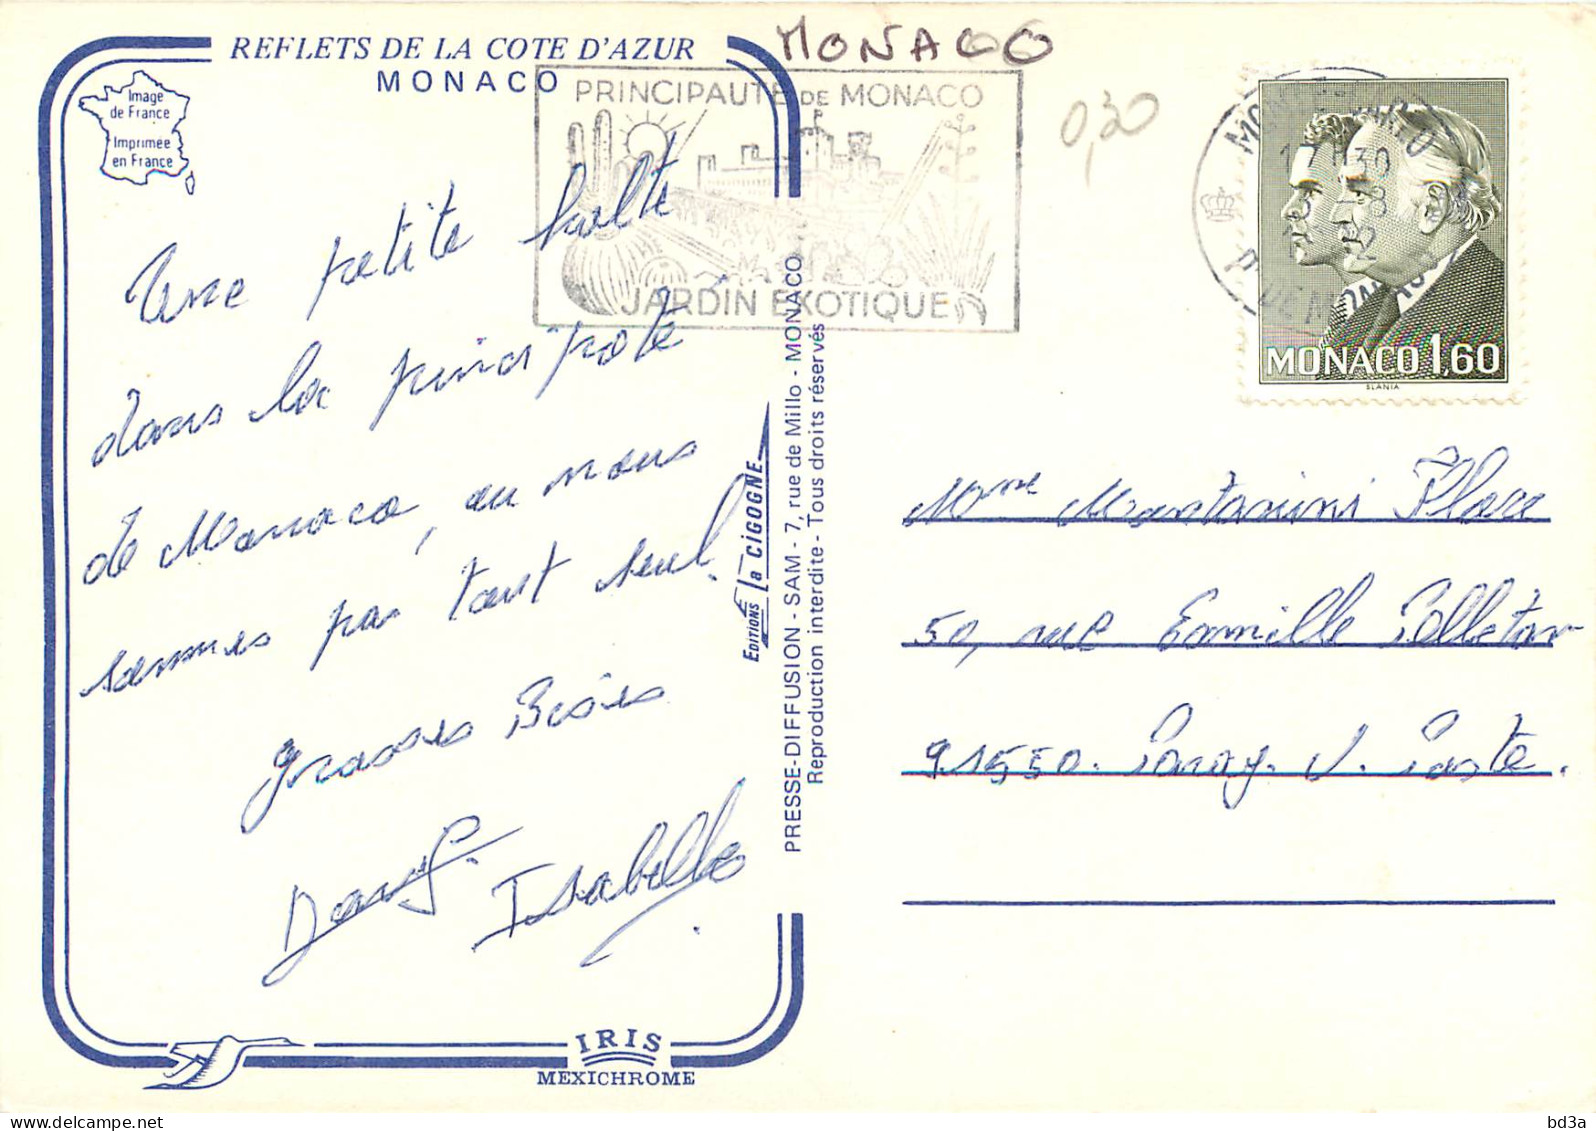 REFLETS DE LA COTE D'AZUR
MONACO
MONACO
0,30
Image
de France
Imprimée
en France
PRINCIPAUTE DE MONACO
JARDIN EXOTIQUE
MONTE-CARLO
17H30
-8
MONACO 1,60
SLANIA
Une petite halte
dans la principoté
de Monaco, ou nous
sommes pas tout seul.
Grosses Bises
Isabelle
EDITIONS La CIGOGNE
PRESSE-DIFFUSION - SAM - 7, rue de Millo - MONACO
Reproduction interdite - Tous droits réservés
Mme Mantarini Flore
50, rue Emmille Pelletan
91550. Paray. V. Poste.
IRIS
MEXICHROME
bd3a